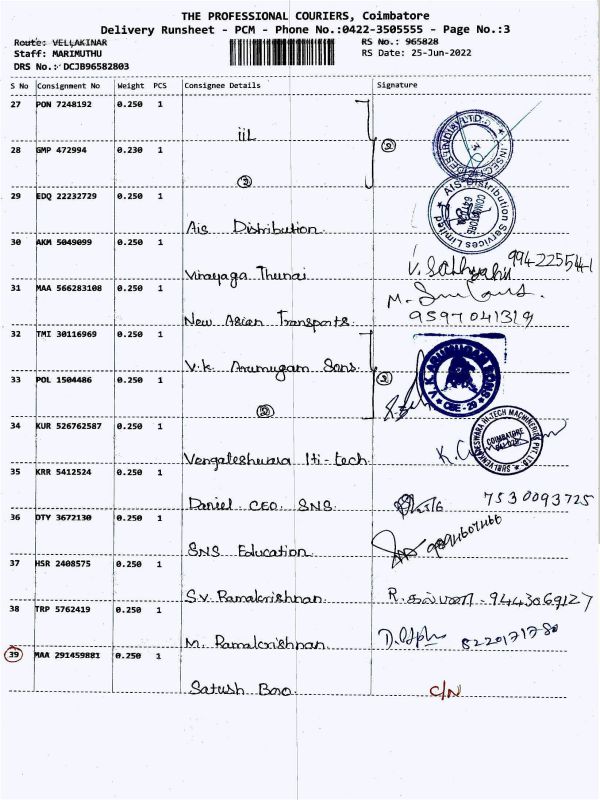 THE PROFESSIONAL COURIERS, Coimbatore
Delivery Runsheet - PCM - Phone No.:0422-3505555 - Page No.:3
Route: VELLAKINAR
RS No.: 965828
Staff: MARIMUTHU
RS Date: 25-Jun-2022
DRS No.: DCJB96582803
S No Consignment No Weight PCS Consignee Details Signature
27 PON 7248192 0.250 1
iiL
28 GMP 472994 0.230 1
②
②
29 EDQ 22232729 0.250 1
Ais Distribution
30 AKM 5049099 0.250 1
Vinayaga Thunai 9942255441
31 MAA 566283108 0.250 1
New Asian Transports 9597041319
32 TMI 30116969 0.250 1
V.K. Arumugam Sons
V.K. ARUMUGAM SONS
CBE - 29
33 POL 1504486 0.250 1
②
②
34 KUR 526762587 0.250 1
Vengateshwara Hi-tech
SHRI VENKADESWARA HI-TECH MACHINERIES PVT LTD
COIMBATORE
35 KRR 5412524 0.250 1
Daniel CEO SNS 7530093725
36 DTY 3672130 0.250 1
SNS Education
37 HSR 2408575 0.250 1
S.V. Ramakrishnan R. கல்பனா - 9443069127
38 TRP 5762419 0.250 1
M. Ramakrishnan 8220171780
39 MAA 291459881 0.250 1
Satush Boro C/N